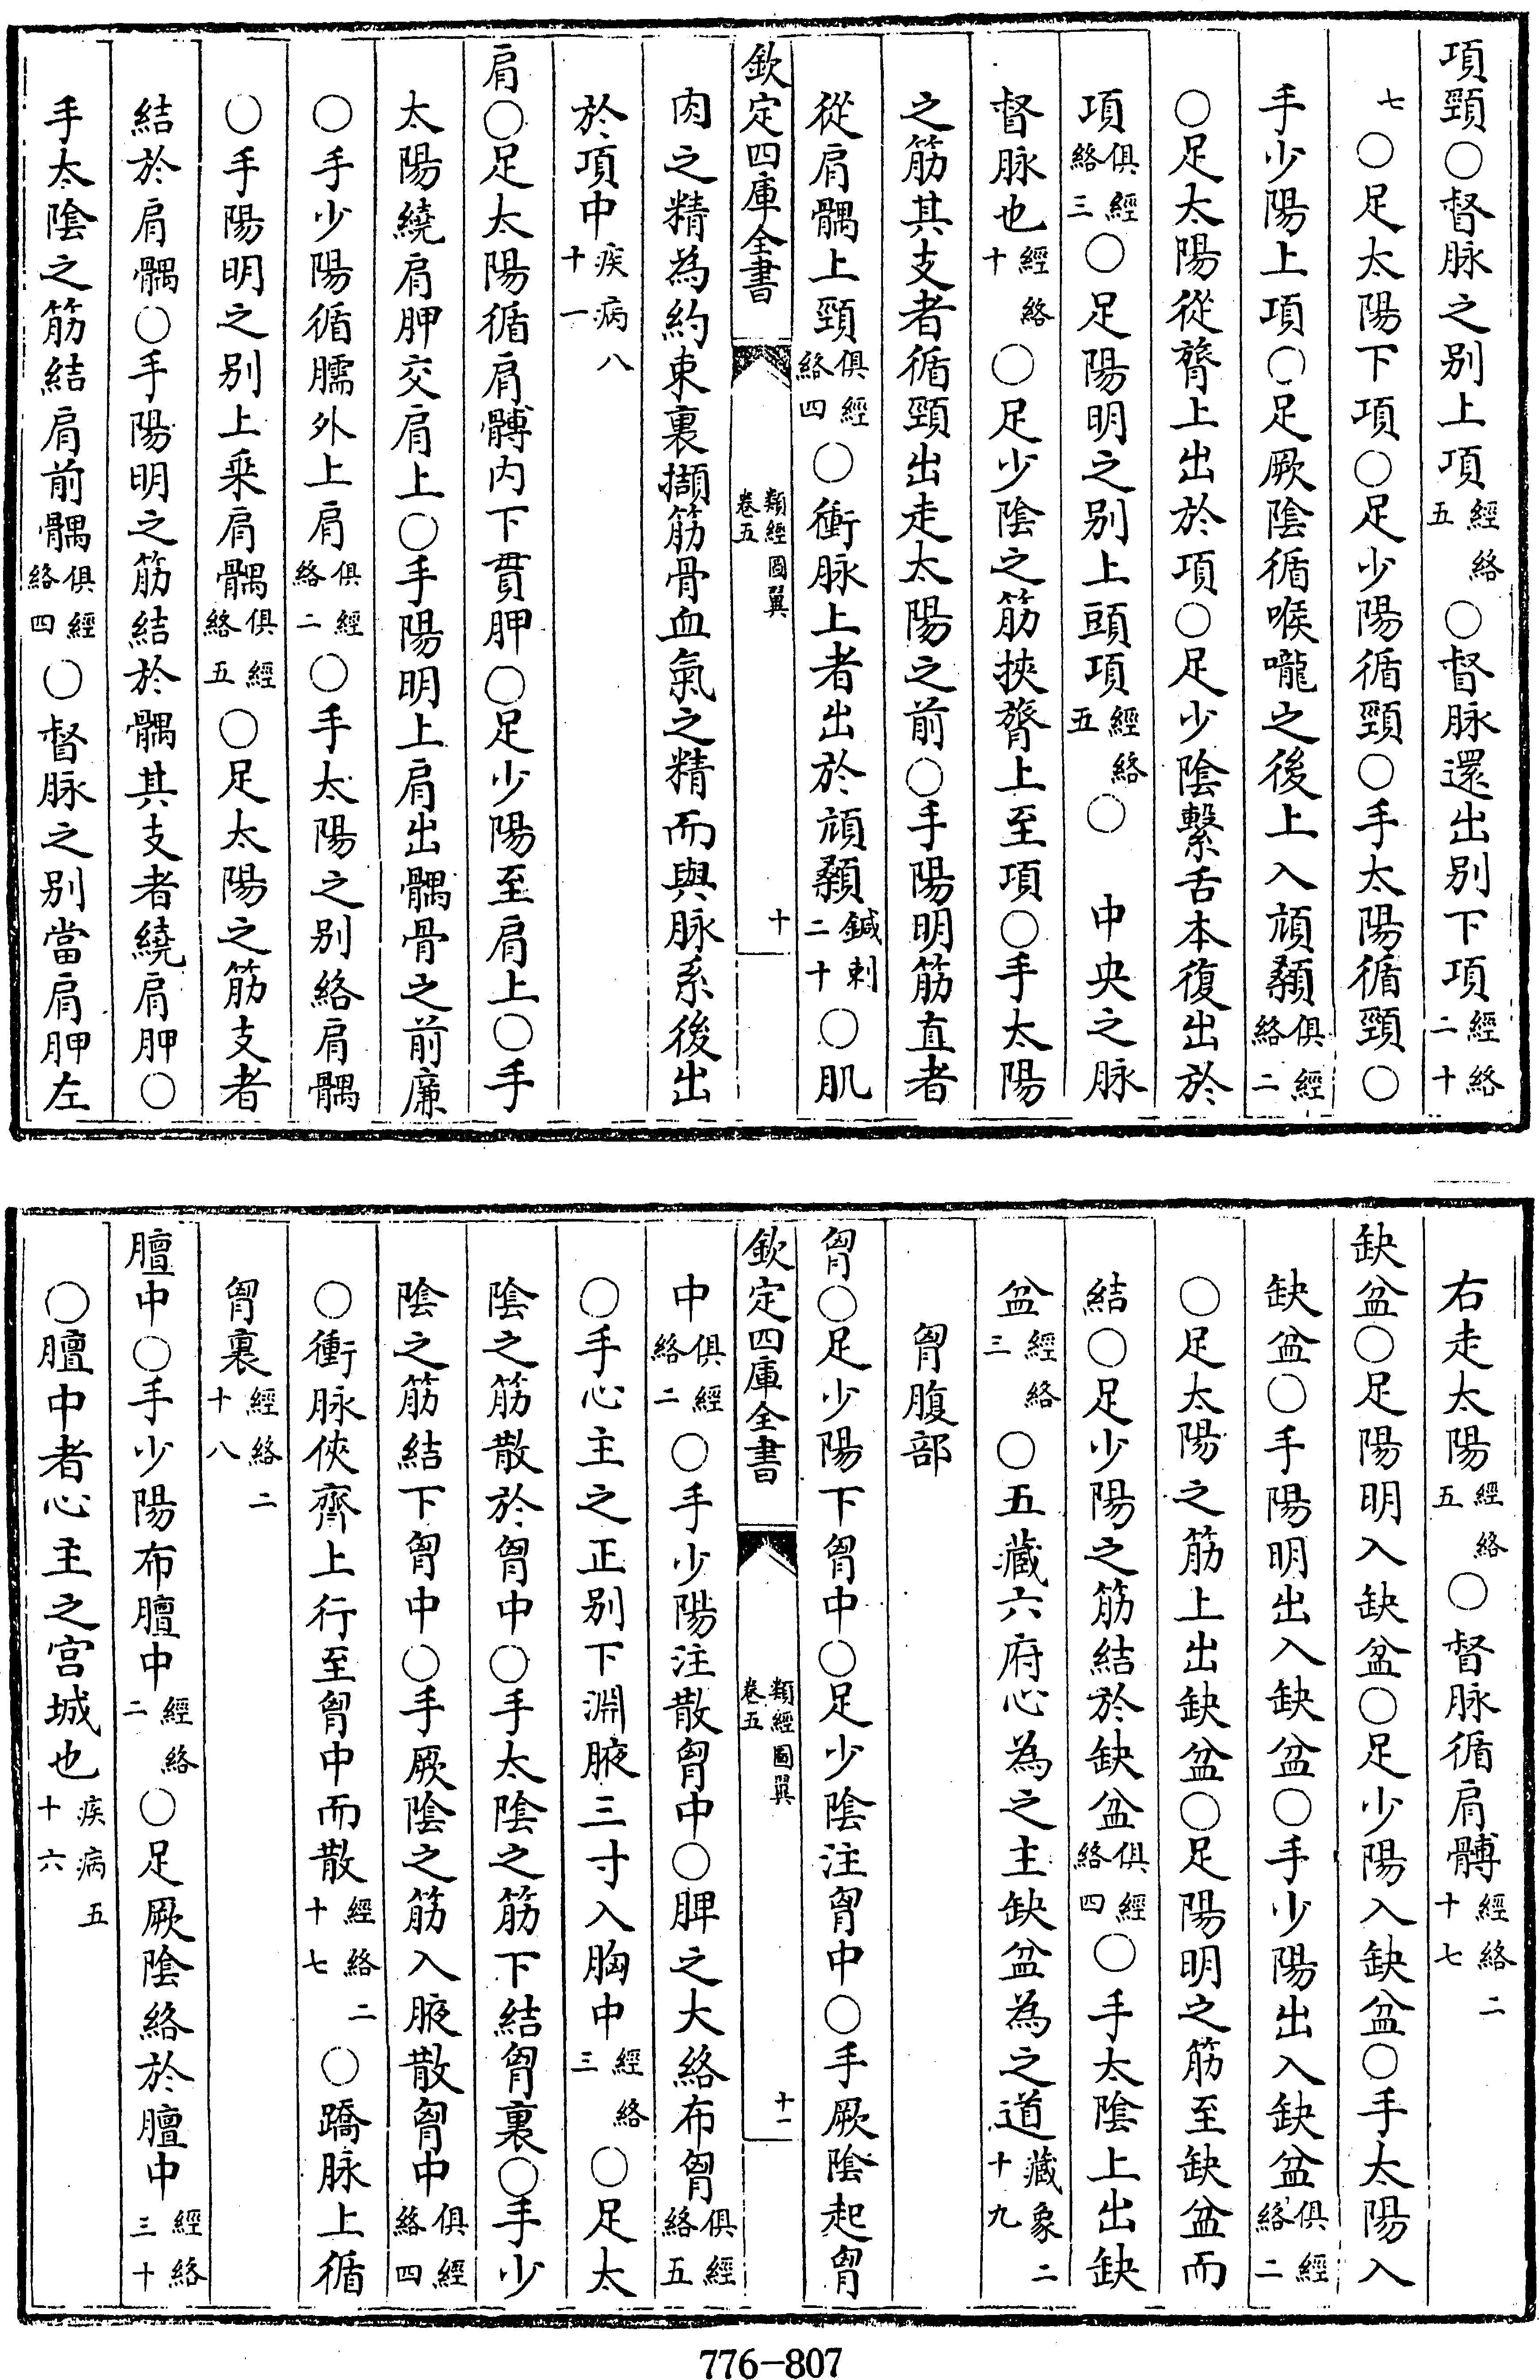 項頸○督脉之别上項經絡五○督脉還出别下項經絡二十
七○足太陽下項○足少陽循頸○手太陽循頸○
手少陽上項○足厥陰循喉嚨之後上入頏顙俱經絡二
○足太陽從膂上出於項○足少陰繫舌本復出於
項俱經絡三○足陽明之别上頭項經絡五○中央之脉
督脉也經絡十○足少陰之筋挾膂上至項○手太陽
之筋其支者循頸出走太陽之前○手陽明筋直者
從肩髃上頸俱經絡四○衝脉上者出於頏顙鍼刺二十○肌
欽定四庫全書 類經圖翼卷五 十
肉之精為約束裏擷筋骨血氣之精而與脉系後出
於項中疾病八十一
肩○足太陽循肩髆内下貫胛○足少陽至肩上○手
太陽繞肩胛交肩上○手陽明上肩出髃骨之前廉
○手少陽循臑外上肩俱經絡二○手太陽之别絡肩髃
○手陽明之别上乘肩髃俱經絡五○足太陽之筋支者
結於肩髃○手陽明之筋結於髃其支者繞肩胛○
手太陰之筋結肩前髃俱經絡四○督脉之别當肩胛左
右走太陽經絡五○督脉循肩髆經絡二十七
缺盆○足陽明入缺盆○足少陽入缺盆○手太陽入
缺盆○手陽明出入缺盆○手少陽出入缺盆俱經絡二
○足太陽之筋上出缺盆○足陽明之筋至缺盆而
結○足少陽之筋結於缺盆俱經絡四○手太陰上出缺
盆經絡三○五藏六府心為之主缺盆為之道藏象二十九
胷腹部
胷○足少陽下胷中○足少陰注胷中○手厥陰起胷
欽定四庫全書 類經圖翼卷五 十一
中俱經絡二○手少陽注散胷中○脾之大絡布胷俱經絡五
○手心主之正别下淵腋三寸入胸中經絡三○足太
陰之筋散於胷中○手太陰之筋下結胷裏○手少
陰之筋結下胷中○手厥陰之筋入腋散胷中俱經絡四
○衝脉俠齊上行至胷中而散經絡二十七○蹻脉上循
胷裏經絡二十八
膻中○手少陽布膻中經絡二○足厥陰絡於膻中經絡三十
○膻中者心主之宫城也疾病五十六
776-807